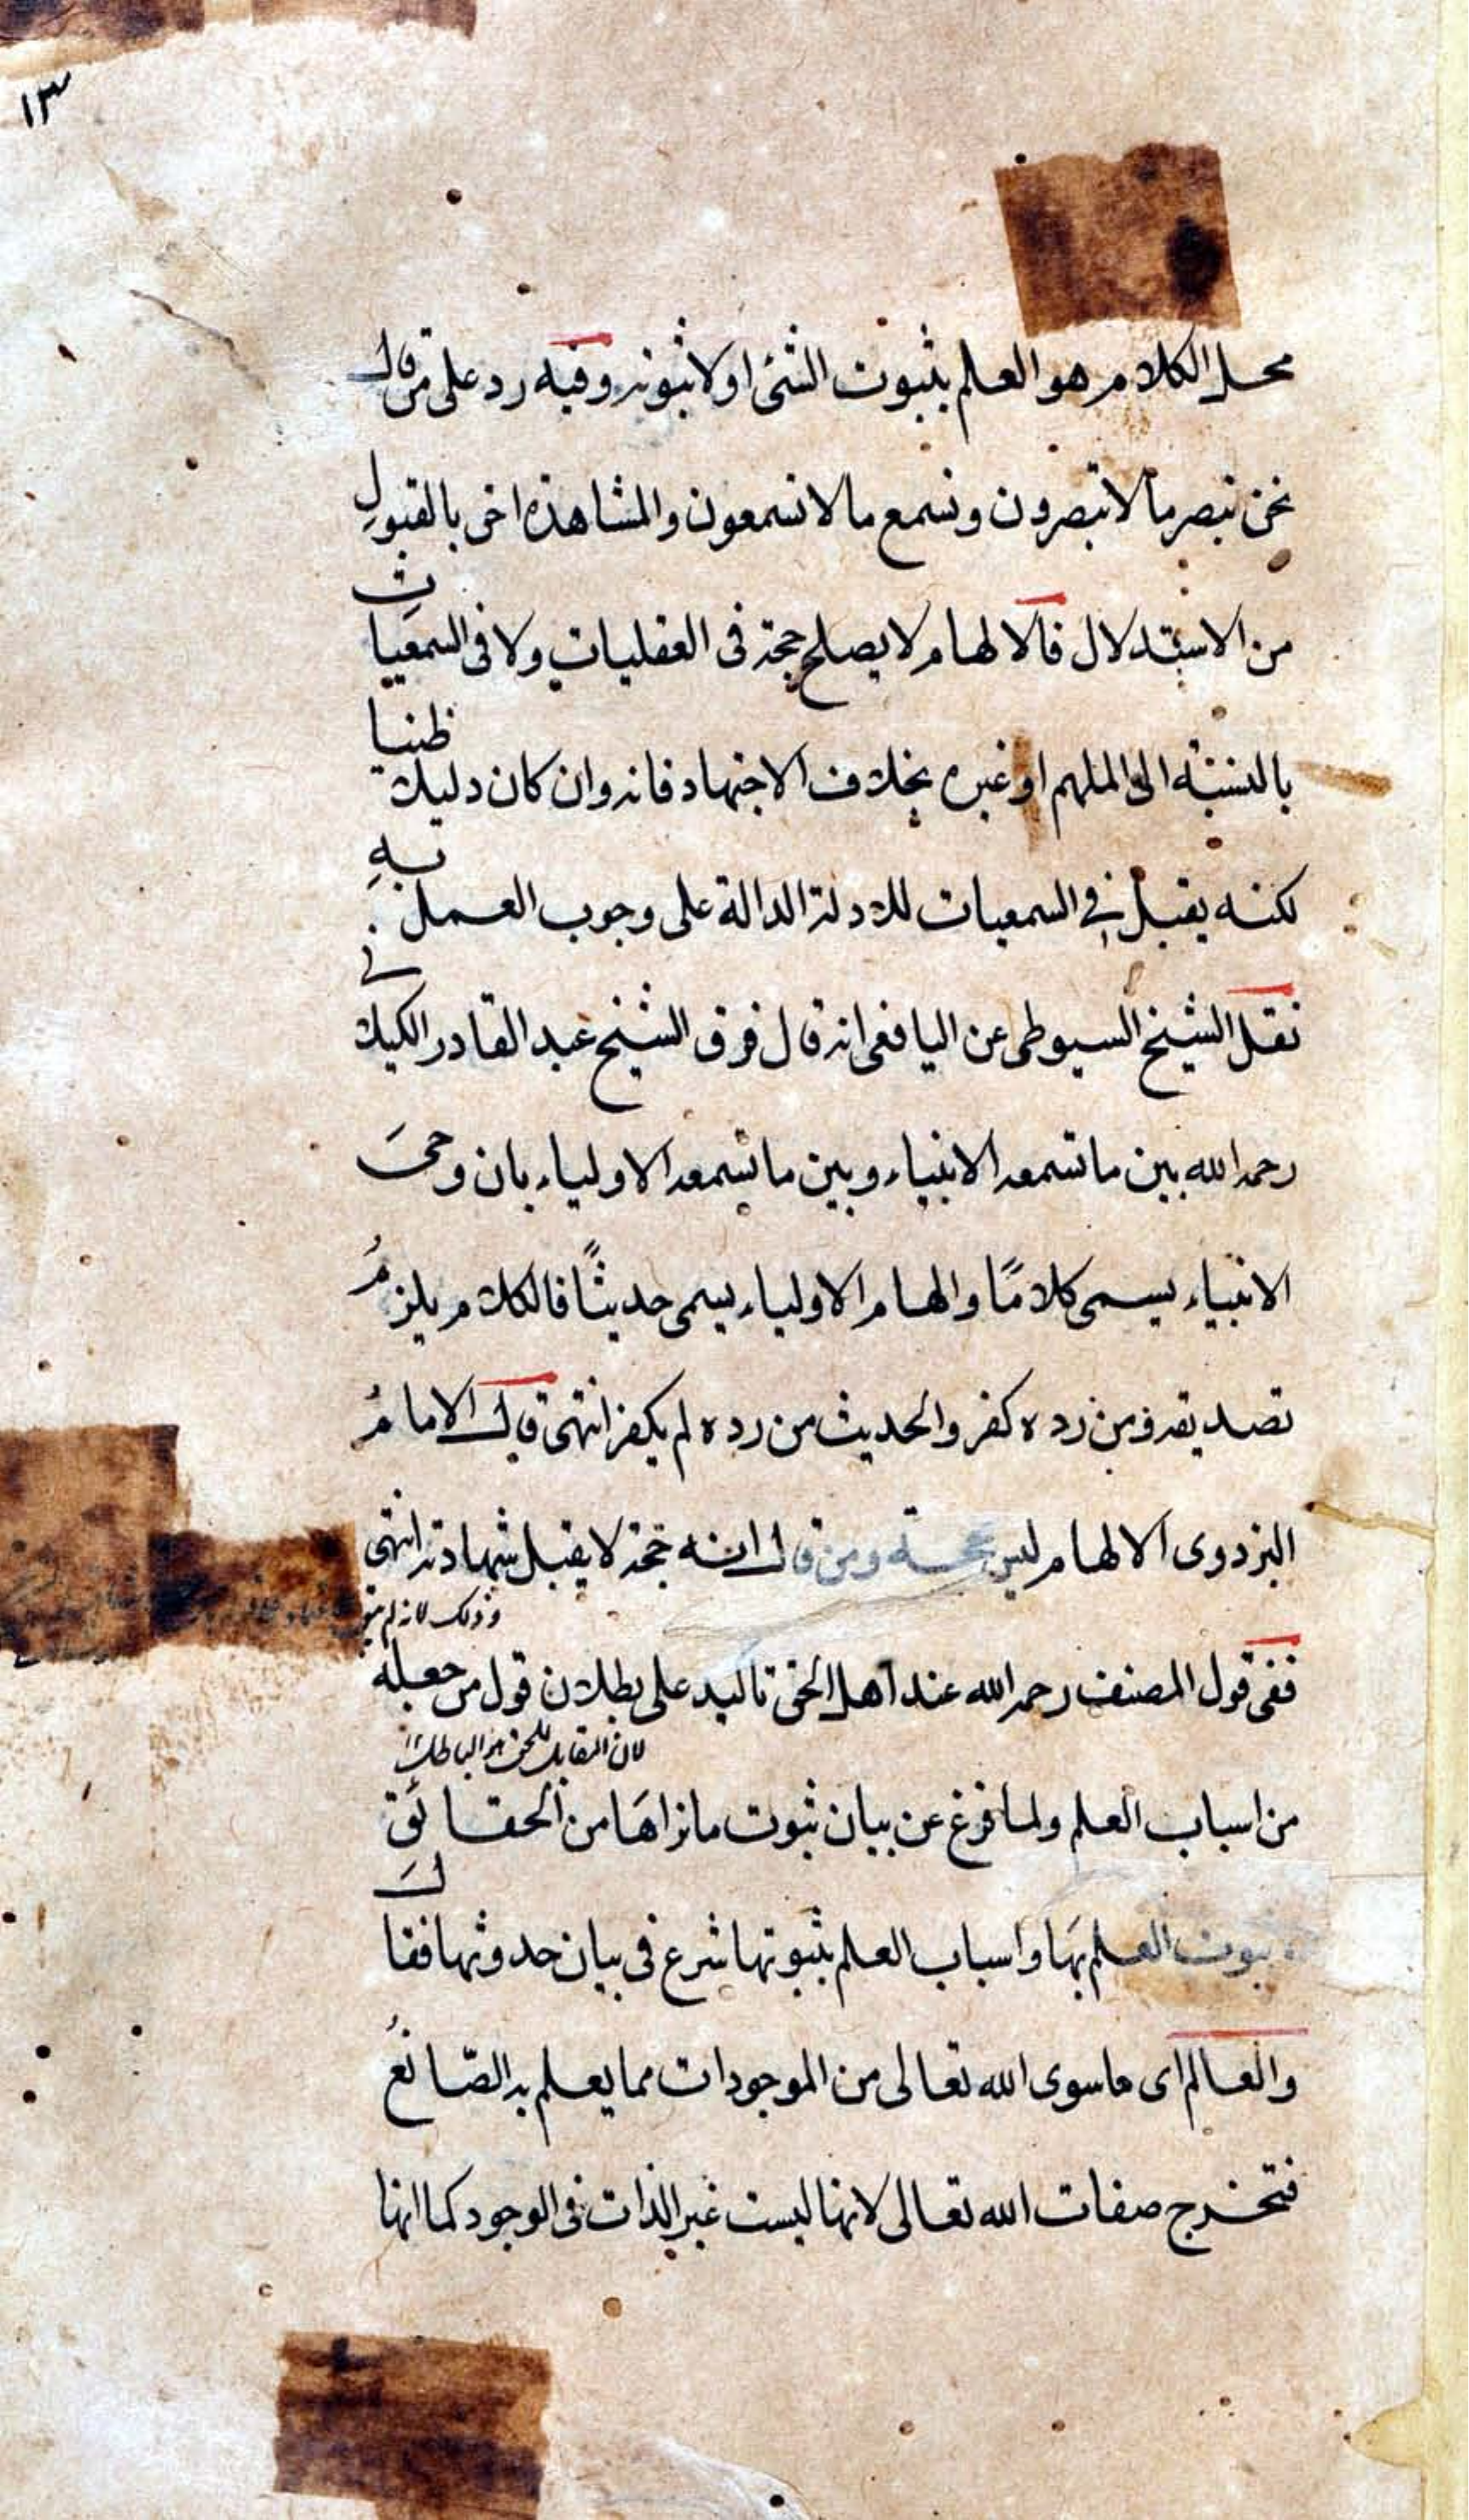 ١٣
محل الكلام هو العلم بثبوت الشئ او لا ثبوته وفيه رد على من قال
نحن نبصر ما لا تبصرون ونسمع ما لا تسمعون والمشاهدة احق بالقبول
من الاستدلال فالالهام لا يصلح حجة فى العقليات ولا فى السمعيات
بالنسبة الى الملهم او غيره بخلاف الاجتهاد فانه وان كان دليلا ظنيا
لكنه يقبل فى السمعيات للادلة الدالة على وجوب العمل به
نقل الشيخ السيوطى عن اليافعى انه قال فرق الشيخ عبد القادر الكيلانى
رحمه الله بين ما تسمعه الانبياء وبين ما تسمعه الاولياء بان وحىَ
الانبياء يسمى كلامًا والهام الاولياء يسمى حديثًا فالكلام يلزمُ
تصديقه ومن رده كفر والحديث من رده لم يكفر انتهى قال الامامُ
البزدوى الالهام ليس بحجة ومن قال انه حجة لا يقبل شهادته انتهى
وذلك لانه لم
ففى قول المصنف رحمه الله عند اهل الحق تاكيد على بطلان قول من جعله
لان المقابل للحق هو الباطل
من اسباب العلم ولما فرغ عن بيان ثبوت ما نراهَا من الحقائق
ثبوت العلم بهَا واسباب العلم بثبوتها شرع فى بيان حدوثها فقالَ
والعالم اى ما سوى الله تعالى من الموجودات مما يعلم به الصّانعُ
فتخرج صفات الله تعالى لانها ليست غير الذات فى الوجود كما انها